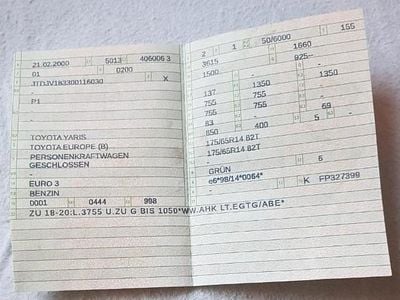 21.02.2000 5013 406006 3
01 0200
JTDJV183300116030 X
-
P1
-
TOYOTA YARIS
TOYOTA EUROPE (B)
PERSONENKRAFTWAGEN
GESCHLOSSEN
-
EURO 3
BENZIN
0001 0444 998
2 1 50/6000 155
3615 1660
1500 925--
- -
137 1350 1350
755 755 -
755 755 -
83 - 69
850 400 5
175/65R14 82T
175/65R14 82T
- -
GRÜN 6
e6*98/14*0064*
- K FP327399
ZU 18-20:L.3755 U.ZU G BIS 1050*WW.AHK LT.EGTG/ABE*